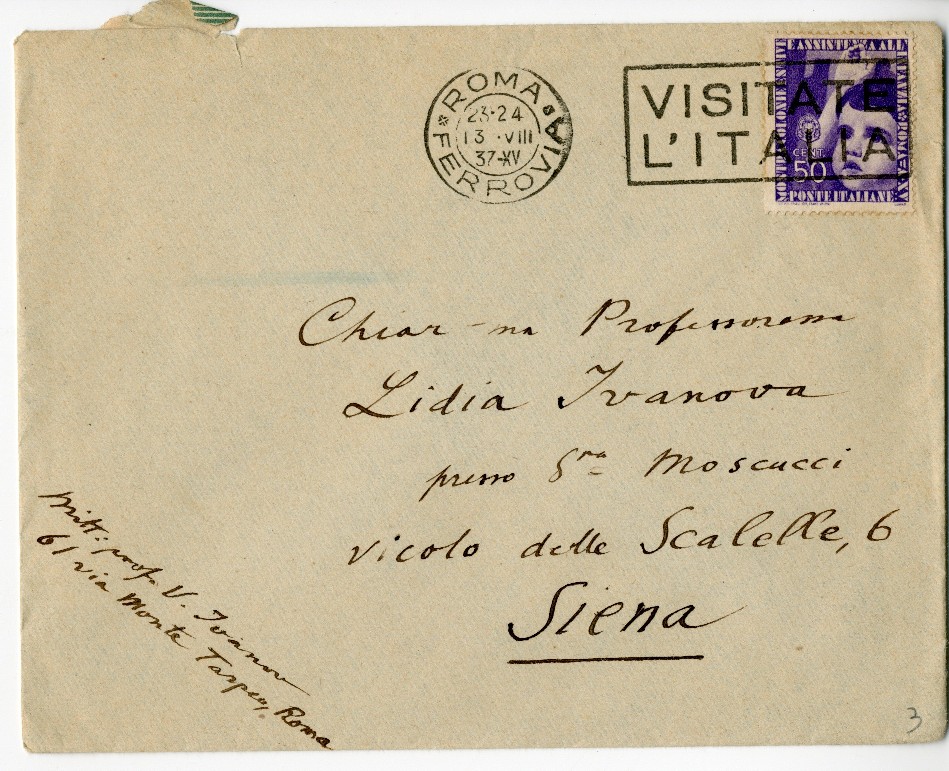 ROMA
FERROVIA
23-24
13 · VIII
37-XV
VISITATE
L'ITALIA
E ASSISTENZA ALL'INFANZIA
CENT.
50
PONTE ITALIANE
Chiar-ma Professoressa
Lidia Ivanova
presso Sra Moscucci
vicolo delle Scalelle, 6
Siena
Mitt: prof. V. Ivanov
61 via Monte Tarpeo, Roma
3